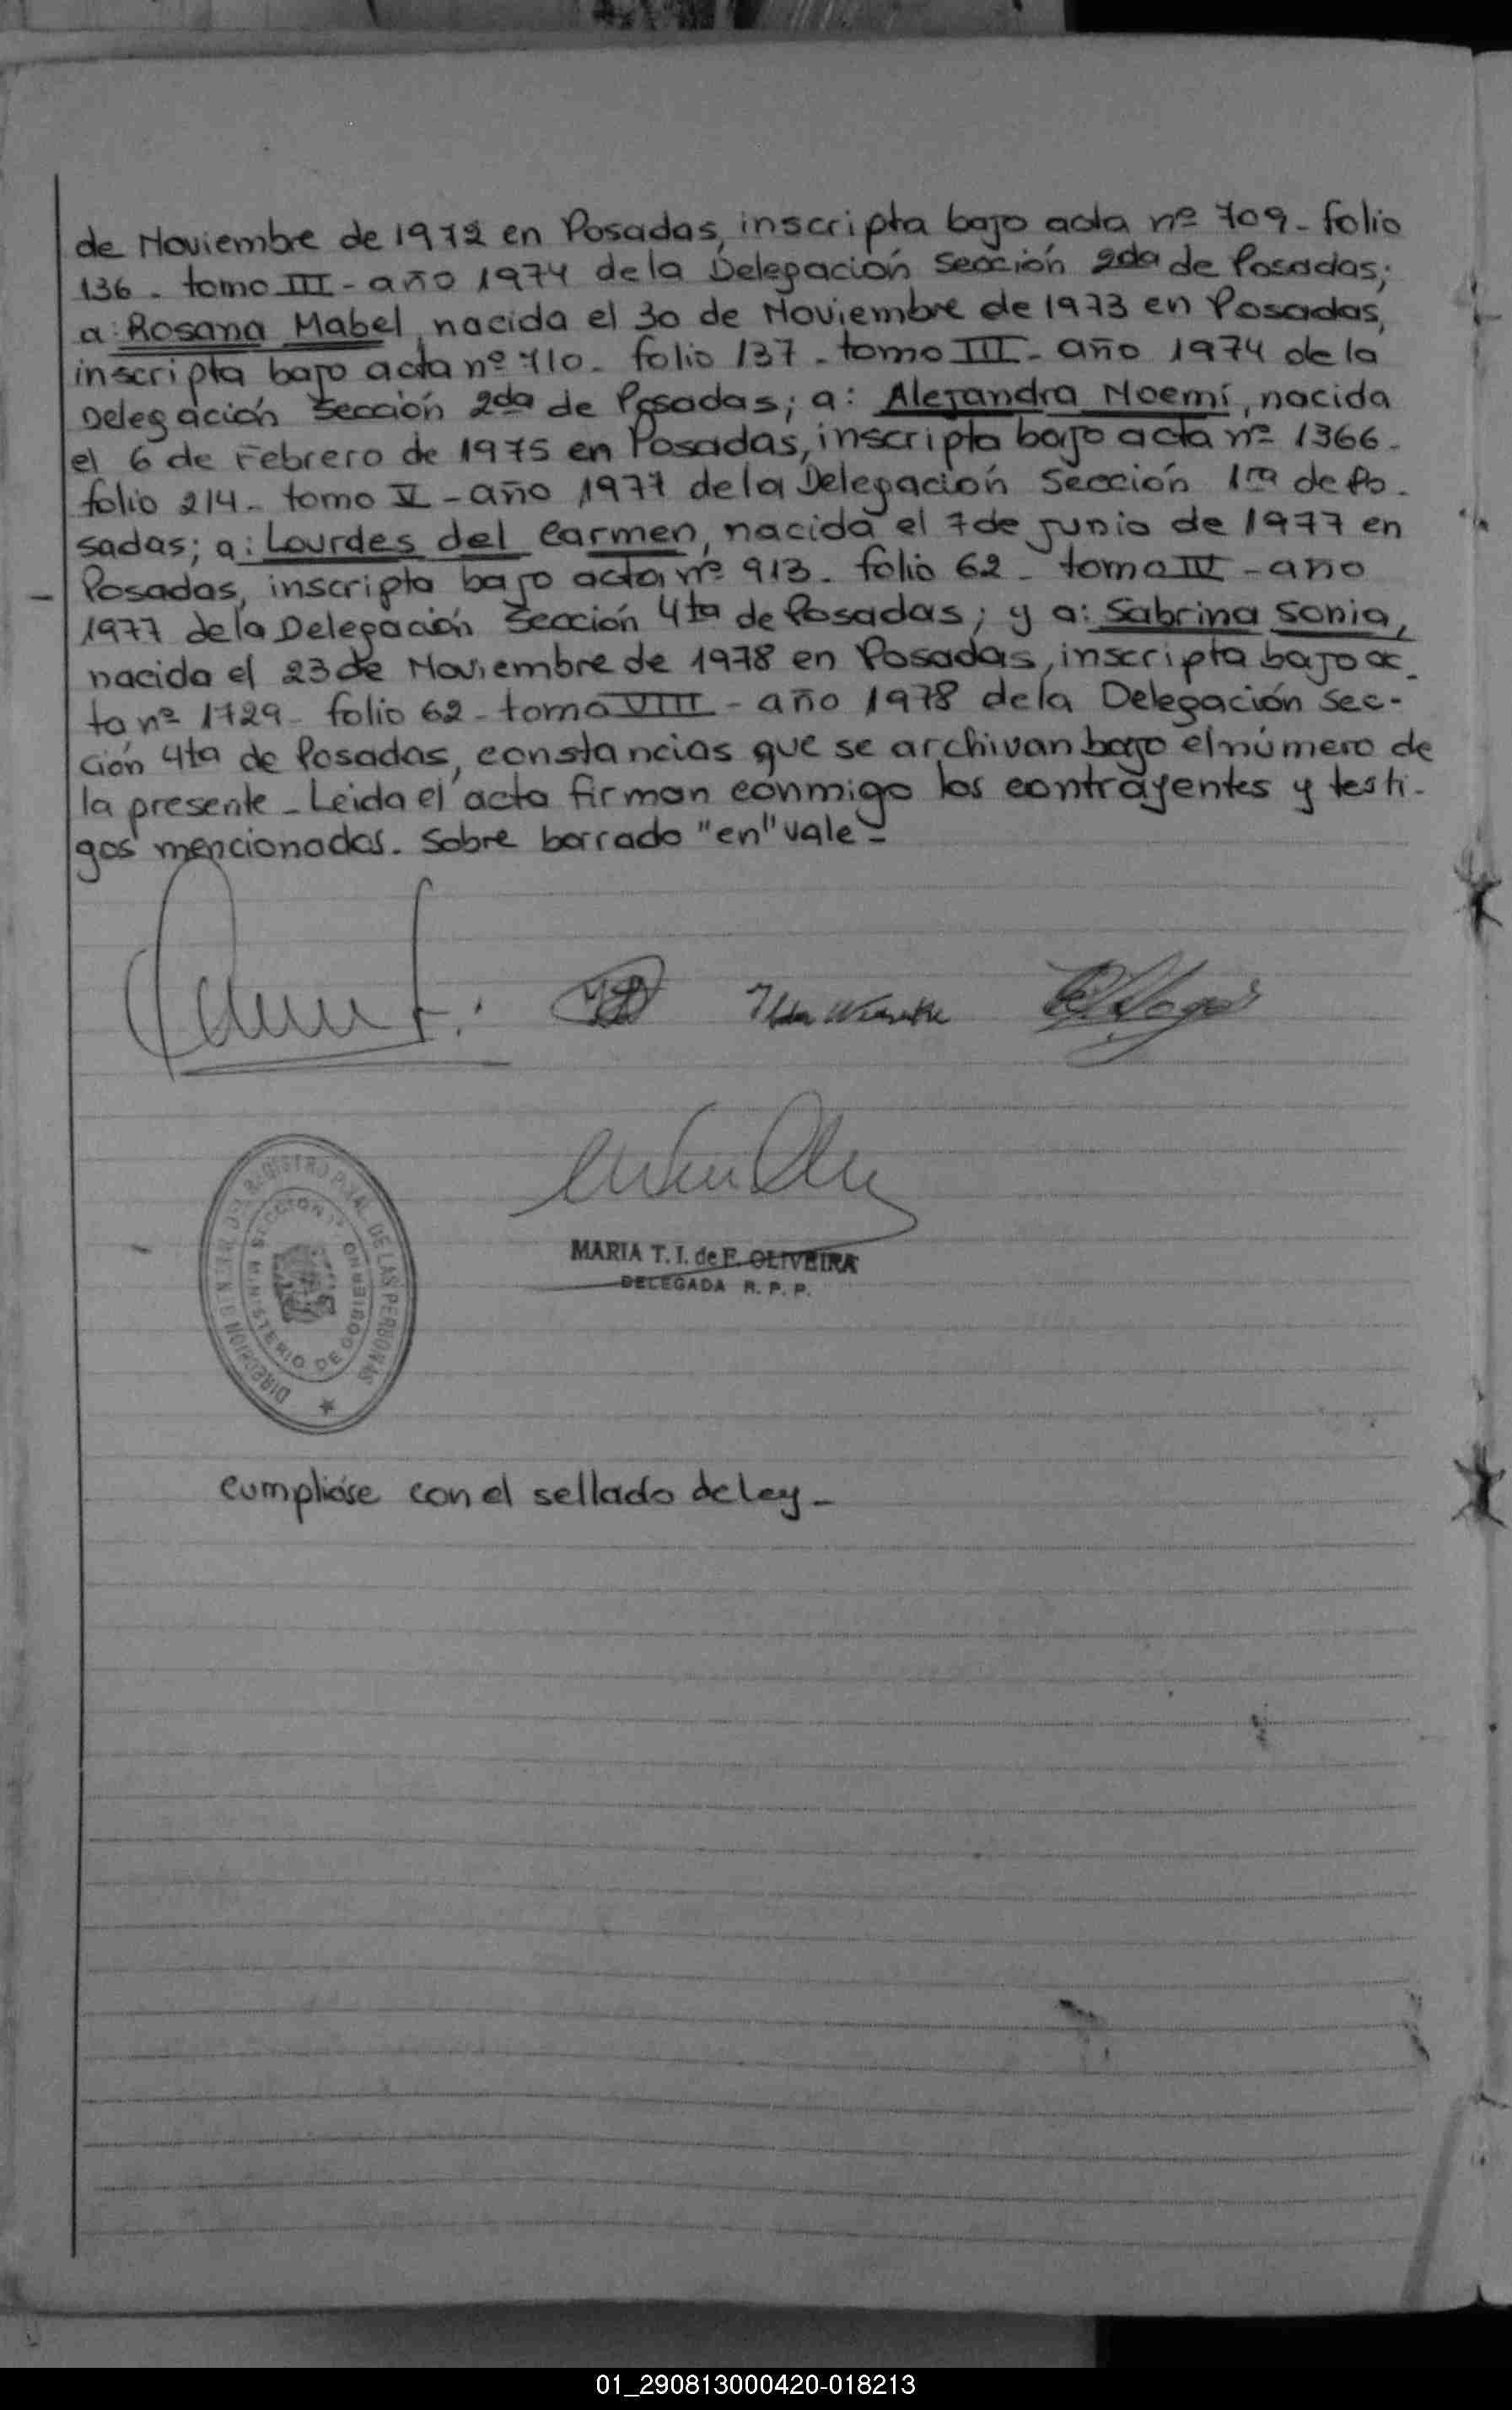 de Noviembre de 1972 en Posadas, inscripta bajo acta nº 709 - folio
136 - tomo III - año 1974 de la Delegación Sección 2da de Posadas;
a: Rosana Mabel, nacida el 30 de Noviembre de 1973 en Posadas,
inscripta bajo acta nº 710 - folio 137 - tomo III - año 1974 de la
Delegación Sección 2da de Posadas; a: Alejandra Noemí, nacida
el 6 de Febrero de 1975 en Posadas, inscripta bajo acta nº 1366 -
folio 214 - tomo V - año 1977 de la Delegación Sección 1ra de Po-
sadas; a: Lourdes del Carmen, nacida el 7 de junio de 1977 en
Posadas, inscripta bajo acta nº 913 - folio 62 - tomo IV - año
1977 de la Delegación Sección 4ta de Posadas; y a: Sabrina Sonia,
nacida el 23 de Noviembre de 1978 en Posadas, inscripta bajo ac-
ta nº 1729 - folio 62 - tomo VIII - año 1978 de la Delegación Sec-
ción 4ta de Posadas, constancias que se archivan bajo el número de
la presente - Leida el acta firman conmigo los contrayentes y testi-
gos mencionados. Sobre borrado "en" vale -
MARIA T. I. de F. OLIVEIRA
DELEGADA R. P. P.
REGISTRO PCIAL. DE LAS PERSONAS
SECCION 1ª
MINISTERIO DE GOBIERNO
cumplióse con el sellado de ley -
01_290813000420-018213